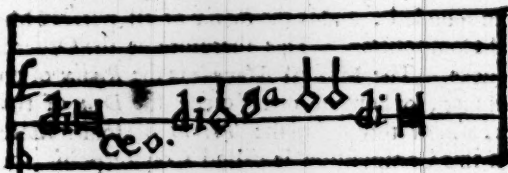 di ceo. di ga di